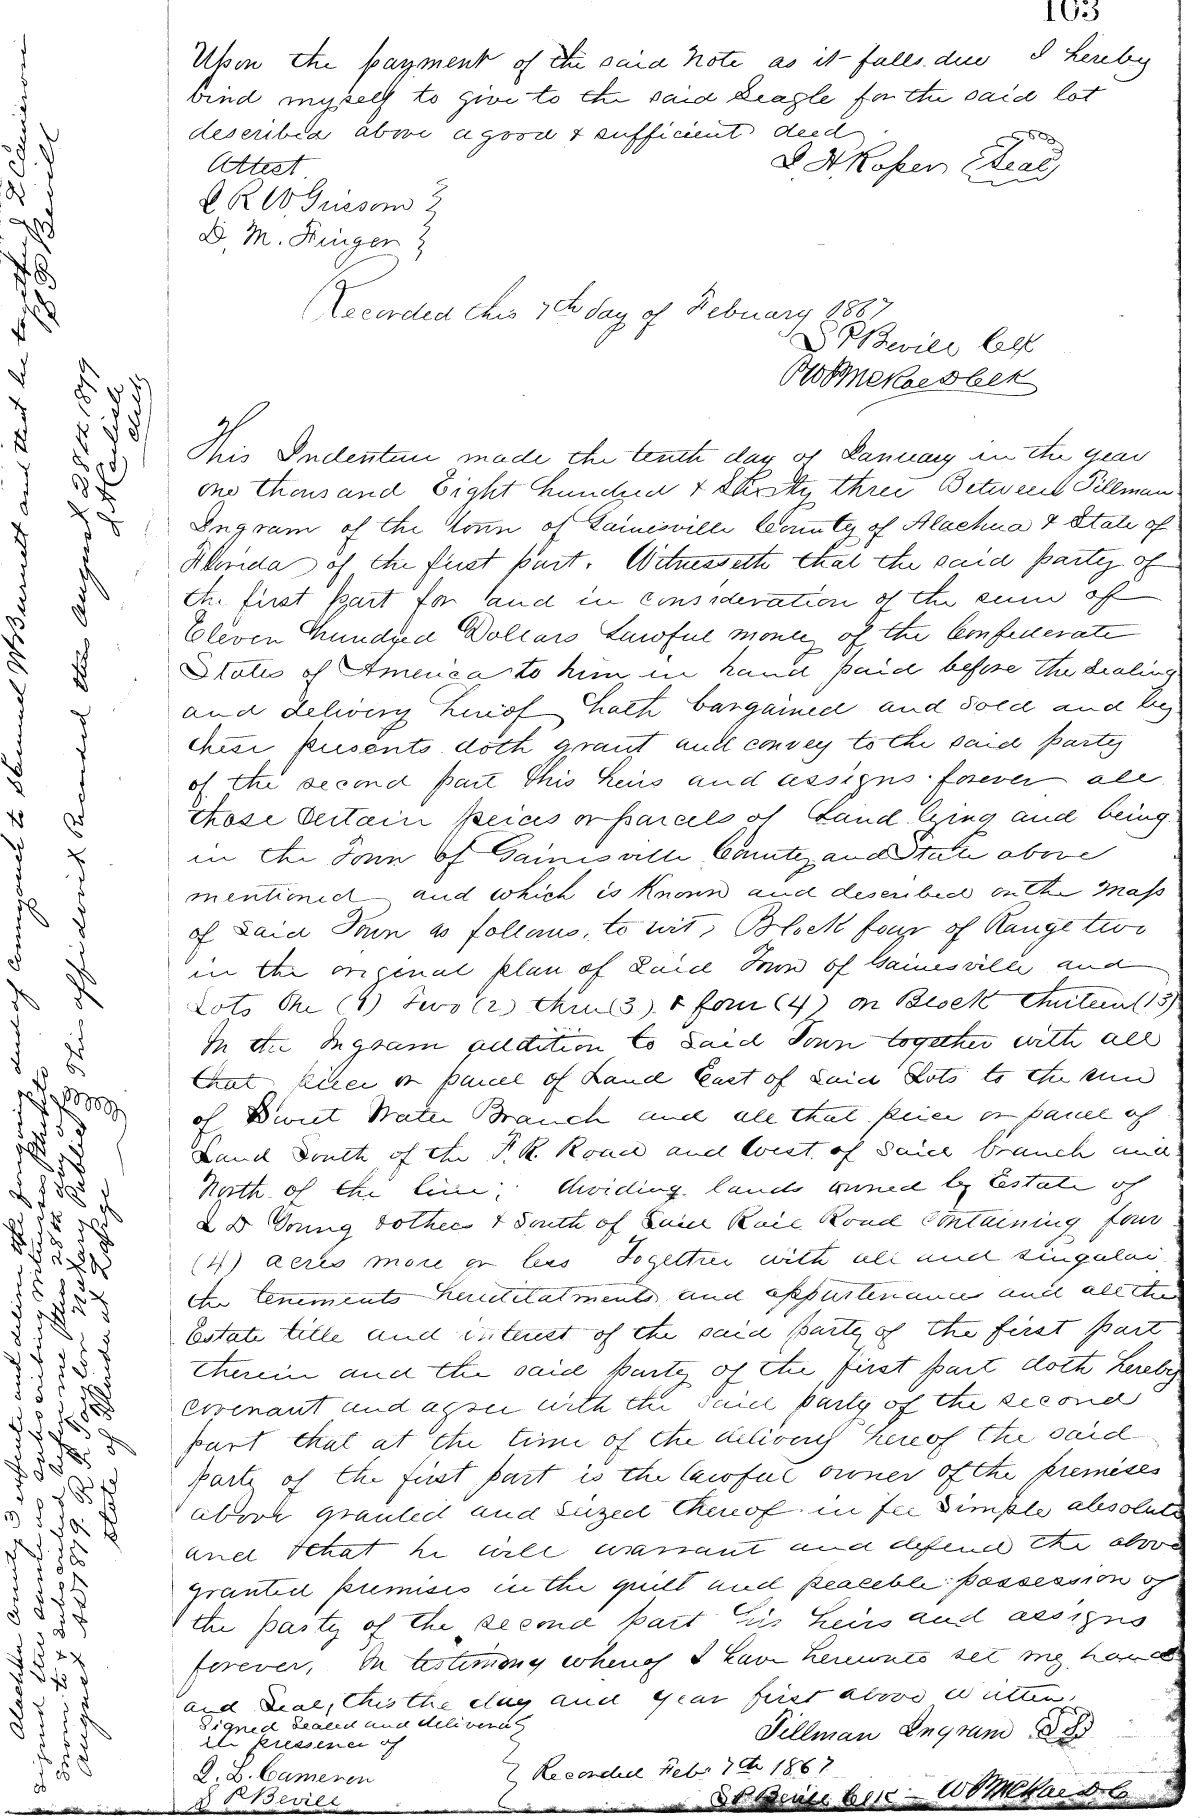 103
Upon the payment of the said Note as it falls due I hereby
bind myself to give to the said Seagle for the said lot
described above a good & sufficient deed.
Attest
J. H. Roper (Seal)
R W Grissom
D. M. Finger
Recorded this 7th day of Febuary 1867
S P Bevill Clk
This Indenture made the tenth day of January in the year
one thousand Eight hundred & Sixty three Between Tillman
Ingram of the Town of Gainesville County of Alachua & State of
Florida of the first part. Witnesseth that the said party of
the first part for and in consideration of the sum of
Eleven hundred Dollars Lawful money of the Confederate
States of America to him in hand paid before the Sealing
and delivery hereof hath bargained and Sold and by
these presents doth grant and convey to the said party
of the second part this heirs and assigns forever all
those Certain peices or parcels of Land lying and being
in the Town of Gainesville County and State above
mentioned and which is Known and described on the Map
of Said Town as follows, to wit, Block four of Range two
in the original plan of Said Town of Gainesville and
Lots One (1) Two (2) three (3) & four (4) on Block thirteen (13)
In the Ingram addition to Said Town together with all
that peice or parcel of Land East of Said Lots to the run
of Sweet Water Branch and all that peice or parcel of
Land South of the F. R. Road and West of Said branch and
North of the line; dividing lands owned by Estate of
L D Young & others & South of Said Rail Road Containing four
(4) acres more or less Together with all and singular
the tenements hereditatments and appurtenances and all the
Estate title and interest of the said party of the first part
therein and the said party of the first part doth hereby
covenant and agree with the Said party of the second
part that at the time of the delivery hereof the said
party of the first part is the lawful owner of the premises
above granted and Seized thereof in fee Simple absolute
and that he will warrant and defend the above
granted premises in the quiet and peaceble possession of
the party of the second part his heirs and assigns
forever, In testimony whereof I have hereunto set my hand
and Seal, this the day and year first above written.
Signed Sealed and delivered
in pressence of
Tillman Ingram
L. L. Cameron
S P Bevill
Recorded Feb 7th 1867
S P Bevill Clk
Alachua County execute and deliver the foregoing deed of conveyance to Samuel W Burnett and that he together L L Cameron
Signed the same as subscribing witnesses thereto
S P Bevill
Sworn to & subscribed before me this 28th day of
August AD 1879. R. H. Taylor Notary Public
State of Florida at Large
This affidavit Recorded this August 28th 1879